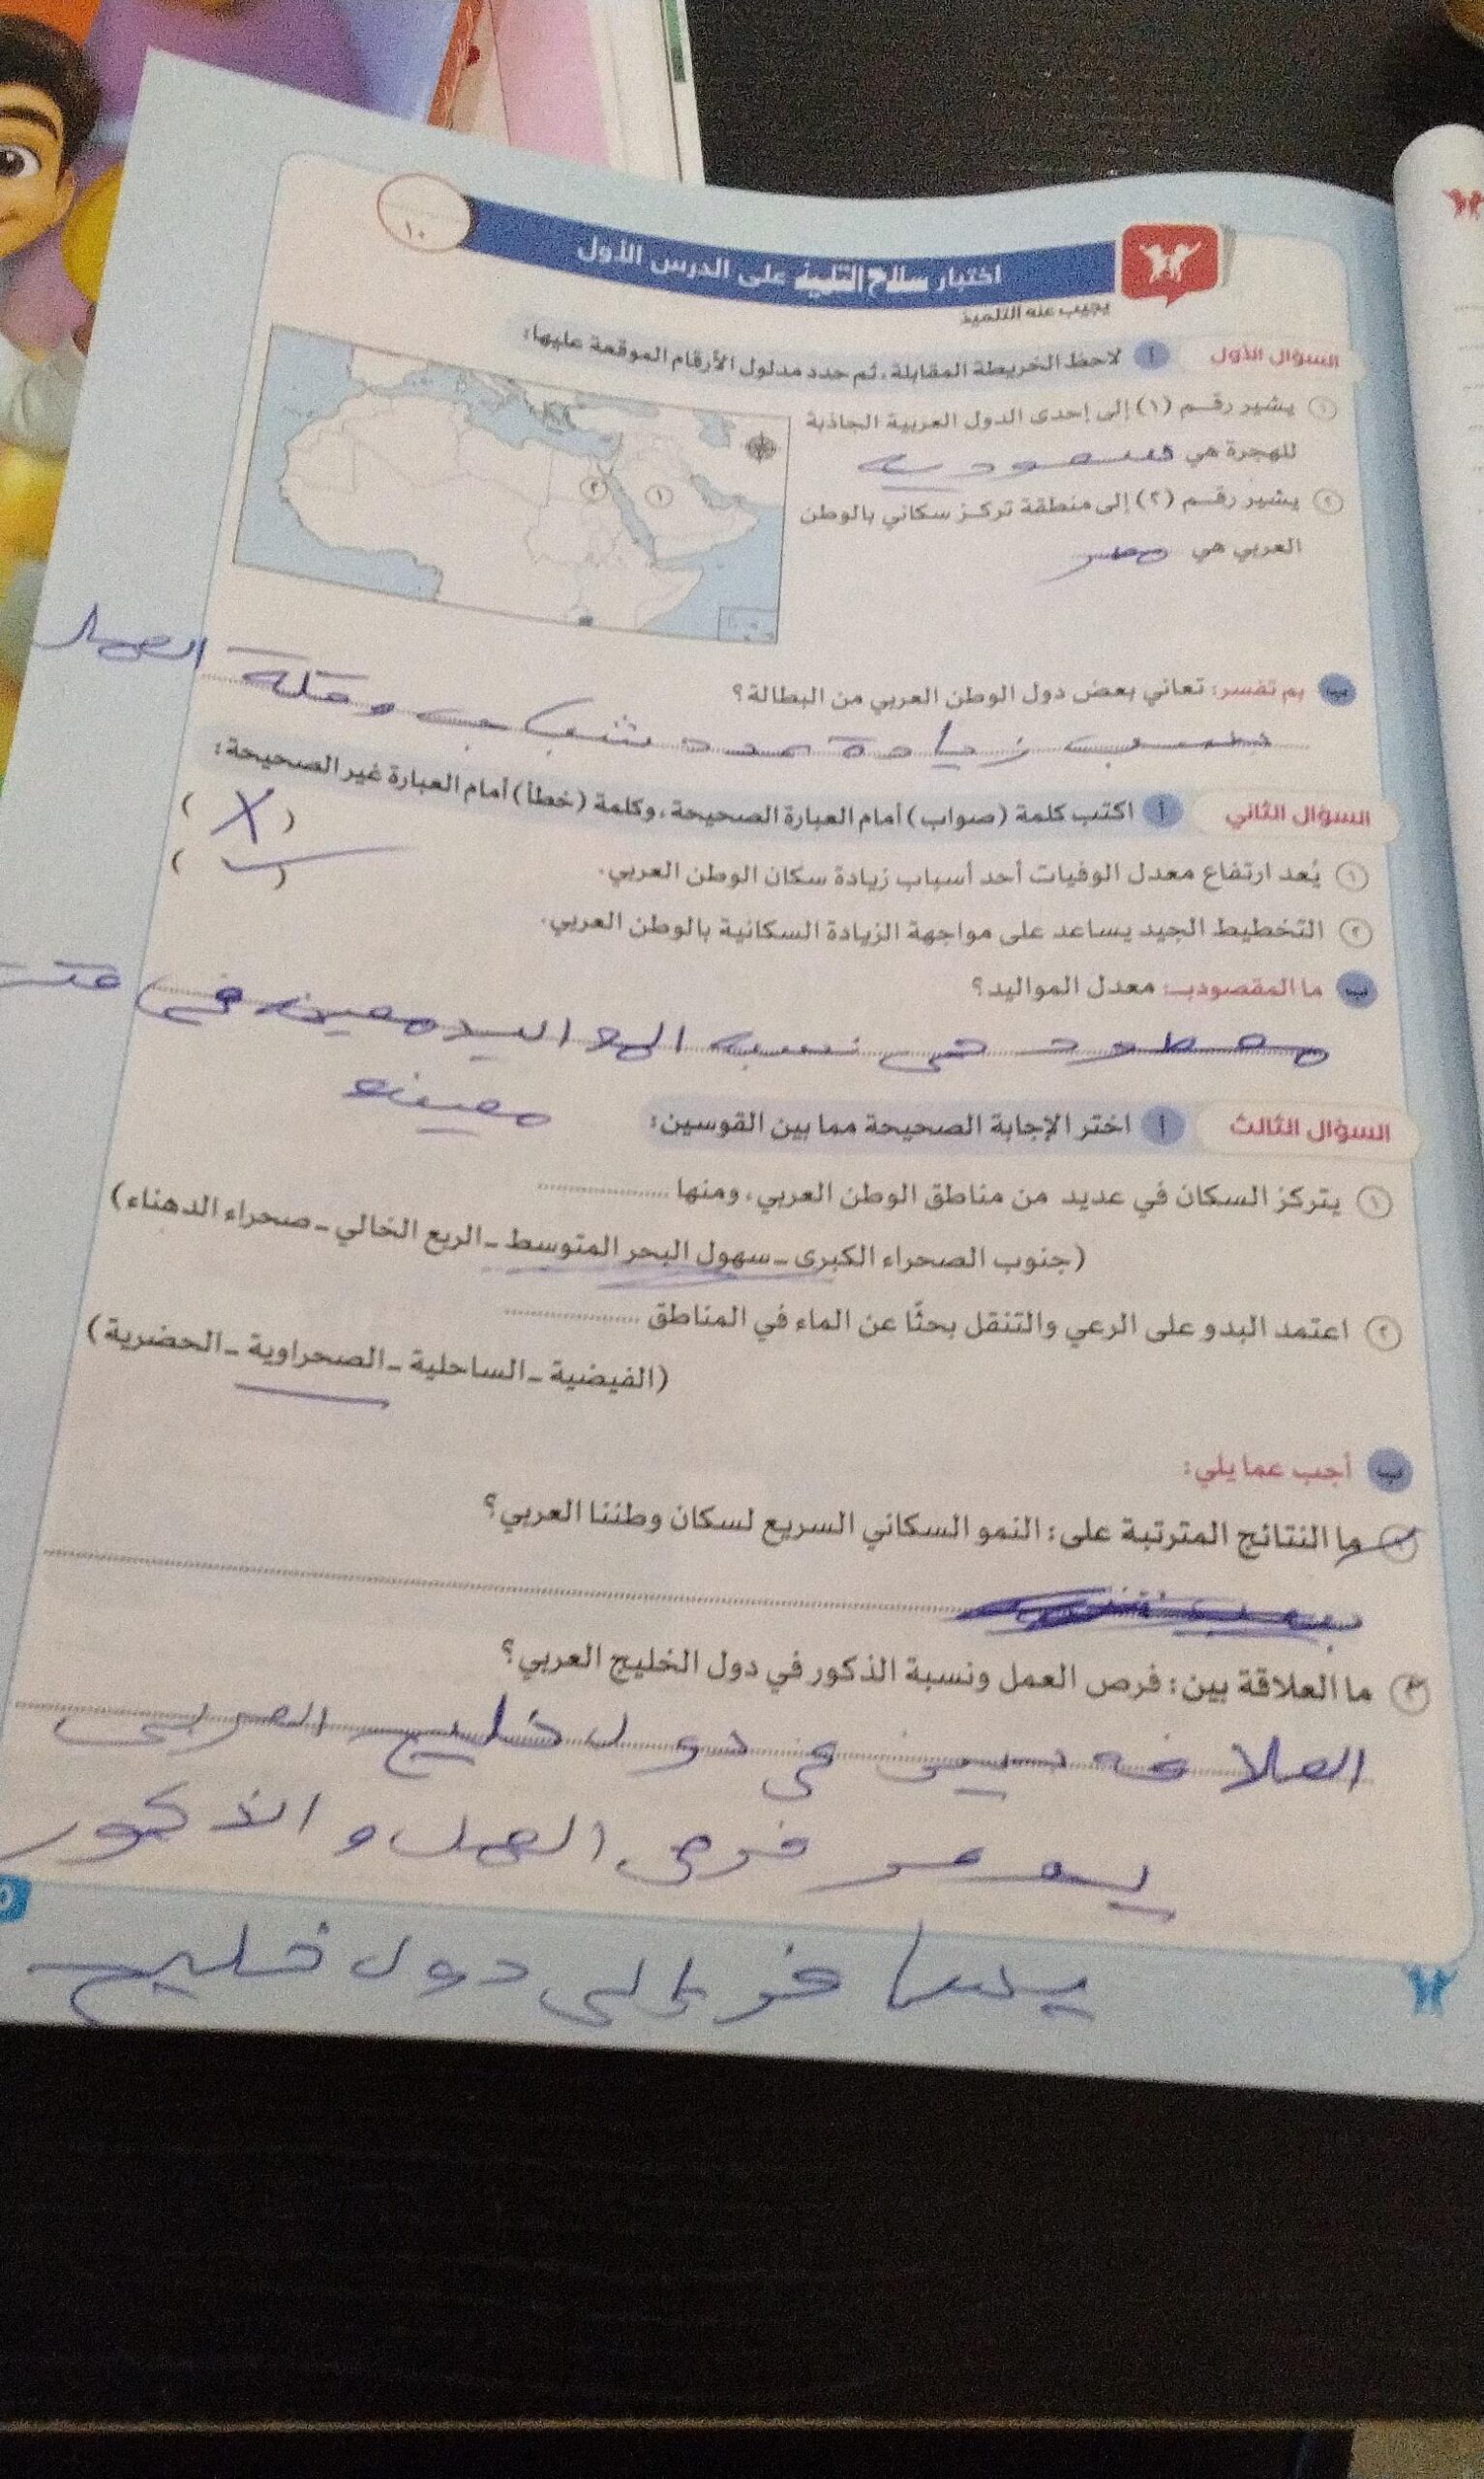 ١٠
اختبار سلاح التلميذ على الدرس الأول
يجيب عنه التلميذ
السؤال الأول أ لاحظ الخريطة المقابلة، ثم حدد مدلول الأرقام الموقعة عليها:
١ يشير رقم (١) إلى إحدى الدول العربية الجاذبة
للهجرة هي سعودية
٢ يشير رقم (٢) إلى منطقة تركز سكاني بالوطن
العربي هي مصر
١
٢
ب بم تفسر: تعاني بعض دول الوطن العربي من البطالة؟
بسبب زيادة عدد شباب وقلة العمل
السؤال الثاني أ اكتب كلمة (صواب) أمام العبارة الصحيحة، وكلمة (خطأ) أمام العبارة غير الصحيحة:
١ يُعد ارتفاع معدل الوفيات أحد أسباب زيادة سكان الوطن العربي. (X)
٢ التخطيط الجيد يساعد على مواجهة الزيادة السكانية بالوطن العربي. (✓)
ب ما المقصود بـ: معدل المواليد؟
هي نسبه المواليد معينه في
معينه
السؤال الثالث أ اختر الإجابة الصحيحة مما بين القوسين:
١ يتركز السكان في عديد من مناطق الوطن العربي، ومنها ..................
(جنوب الصحراء الكبرى – سهول البحر المتوسط – الربع الخالي – صحراء الدهناء)
٢ اعتمد البدو على الرعي والتنقل بحثًا عن الماء في المناطق ..................
(الفيضية – الساحلية – الصحراوية – الحضرية)
ب أجب عما يلي:
١ ما النتائج المترتبة على: النمو السكاني السريع لسكان وطننا العربي؟
٢ ما العلاقة بين: فرص العمل ونسبة الذكور في دول الخليج العربي؟
العلاقه بين في دول خليج العربي
فرص العمل و الذكور
يسافر إلى دول خليج